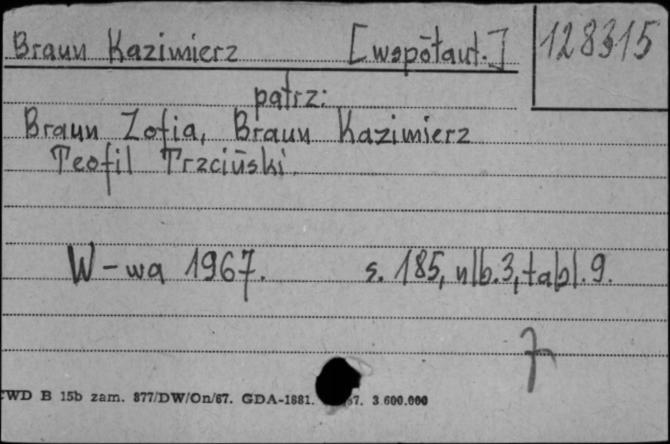 Braun Kazimierz [współaut.] 128315
patrz:
Braun Zofia, Braun Kazimierz
Teofil Trzciński.
W-wa 1967. s. 185, nlb.3, tabl.9.
7
CWD B 15b zam. 877/DW/On/67. GDA-1881. 67. 3.600.000